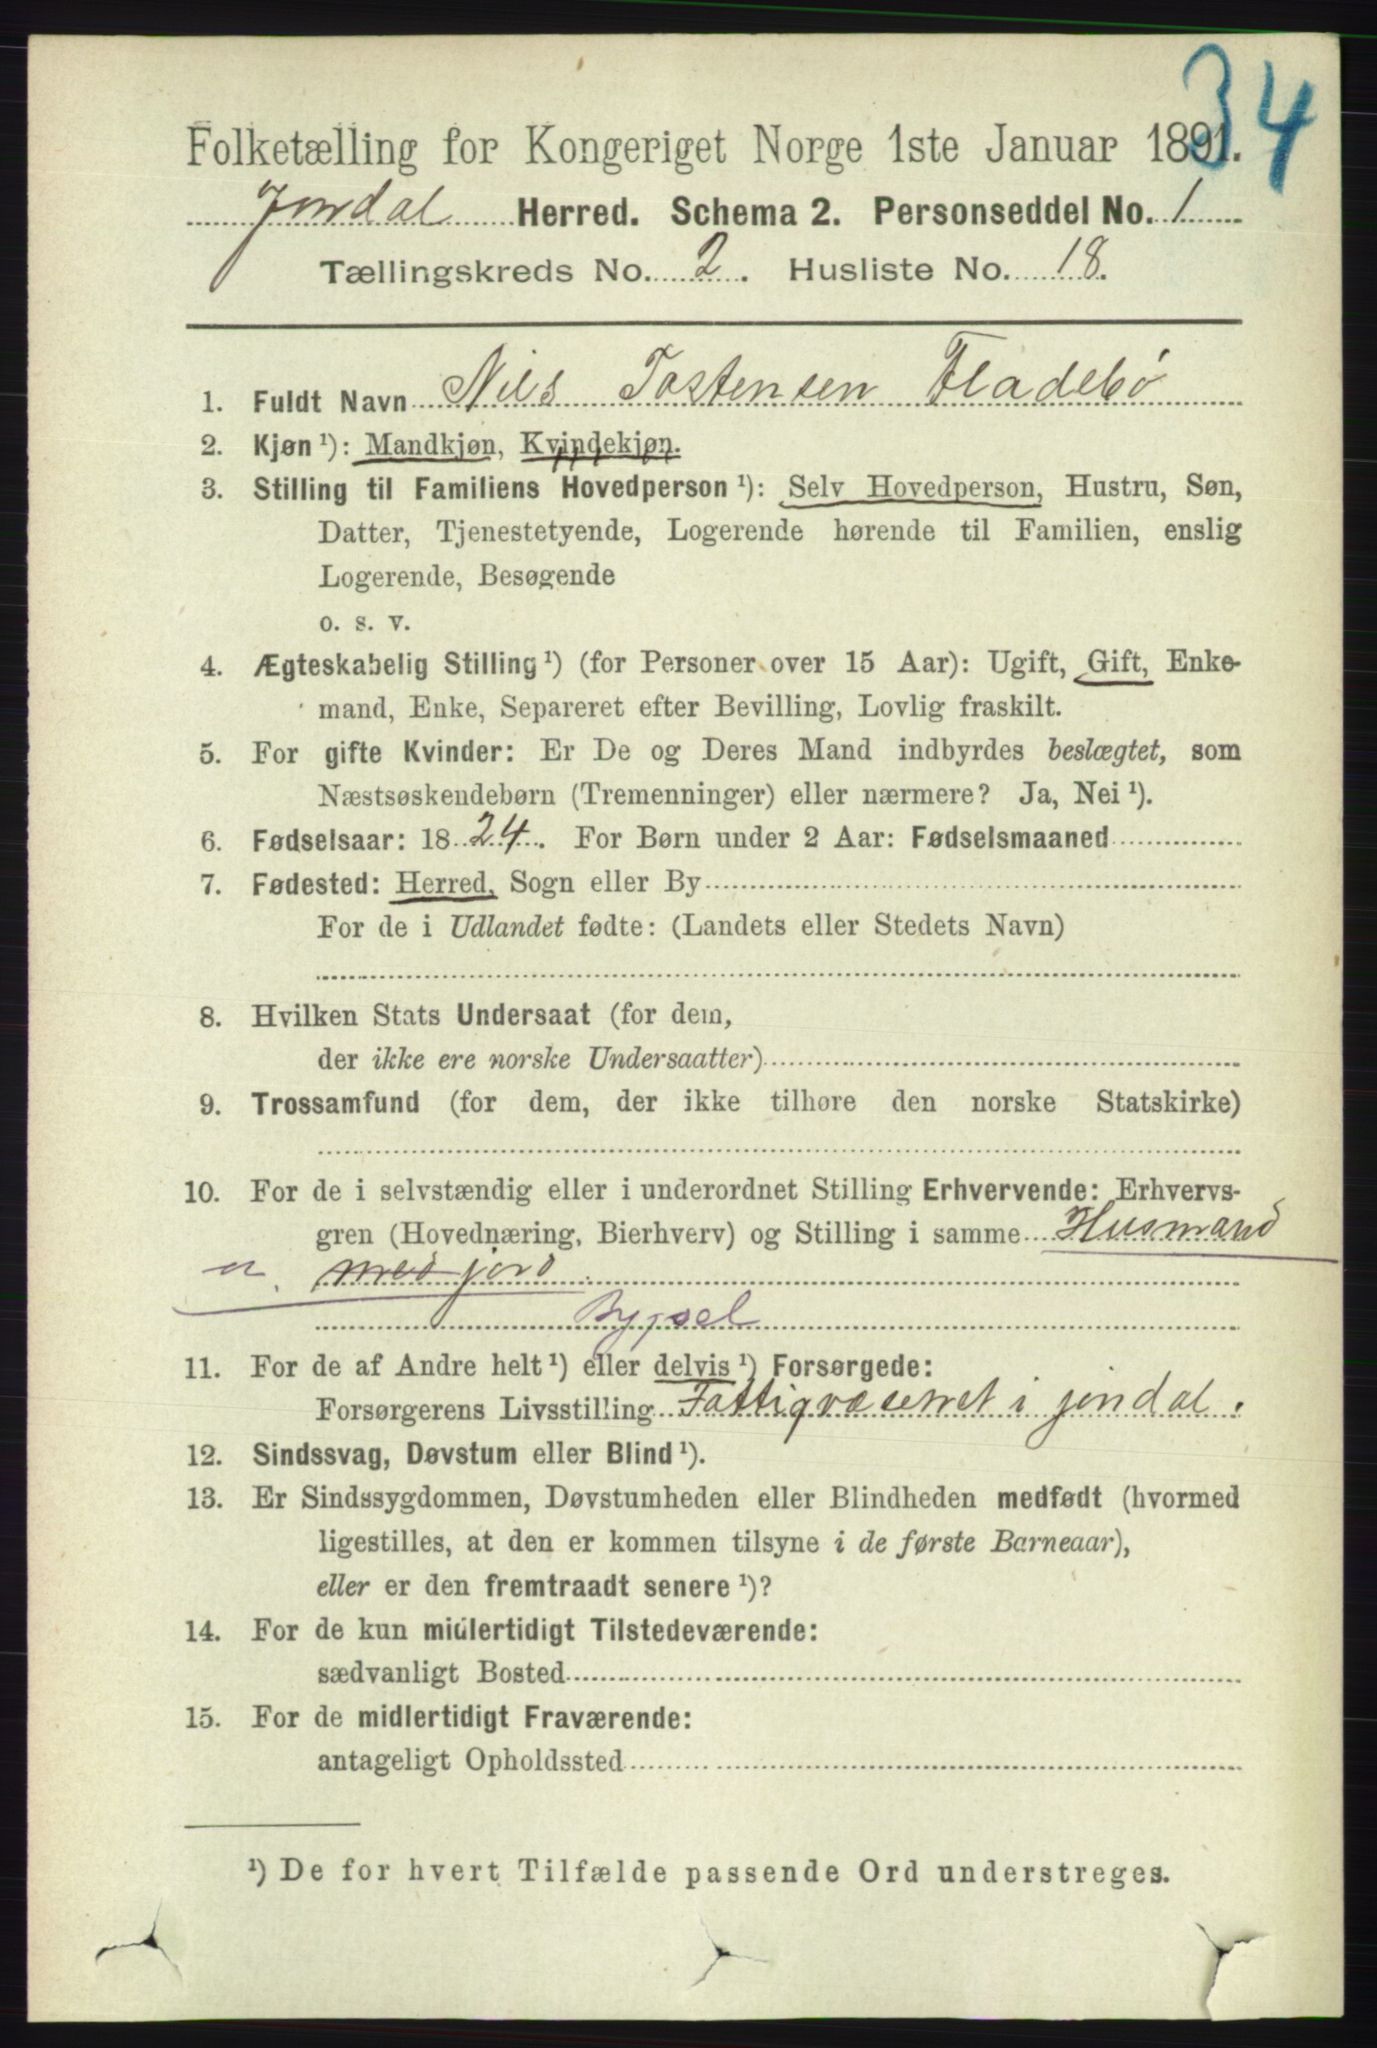 34
Folketælling for Kongeriget Norge 1ste Januar 1891.
Jondal Herred. Schema 2. Personseddel No. 1
Tællingskreds No. 2. Husliste No. 18.
1. Fuldt Navn Nils Tostensen Fladebø
2. Kjøn ¹): Mandkjøn, Kvindekjøn.
3. Stilling til Familiens Hovedperson ¹): Selv Hovedperson, Hustru, Søn,
Datter, Tjenestetyende, Logerende hørende til Familien, enslig
Logerende, Besøgende
o. s. v.
4. Ægteskabelig Stilling ¹) (for Personer over 15 Aar): Ugift, Gift, Enke-
mand, Enke, Separeret efter Bevilling, Lovlig fraskilt.
5. For gifte Kvinder: Er De og Deres Mand indbyrdes beslægtet, som
Næstsøskendebørn (Tremenninger) eller nærmere? Ja, Nei ¹).
6. Fødselsaar: 1824. For Børn under 2 Aar: Fødselsmaaned
7. Fødested: Herred, Sogn eller By
For de i Udlandet fødte: (Landets eller Stedets Navn)
8. Hvilken Stats Undersaat (for dem,
der ikke ere norske Undersaatter)
9. Trossamfund (for dem, der ikke tilhøre den norske Statskirke)
10. For de i selvstændig eller i underordnet Stilling Erhvervende: Erhvervs-
gren (Hovednæring, Bierhverv) og Stilling i samme Husmand
u. med jord
Bygsel
11. For de af Andre helt ¹) eller delvis ¹) Forsørgede:
Forsørgerens Livsstilling Fattigvæsenet i jondal.
12. Sindssvag, Døvstum eller Blind ¹).
13. Er Sindssygdommen, Døvstumheden eller Blindheden medfødt (hvormed
ligestilles, at den er kommen tilsyne i de første Barneaar),
eller er den fremtraadt senere ¹)?
14. For de kun midlertidigt Tilstedeværende:
sædvanligt Bosted
15. For de midlertidigt Fraværende:
antageligt Opholdssted
¹) De for hvert Tilfælde passende Ord understreges.